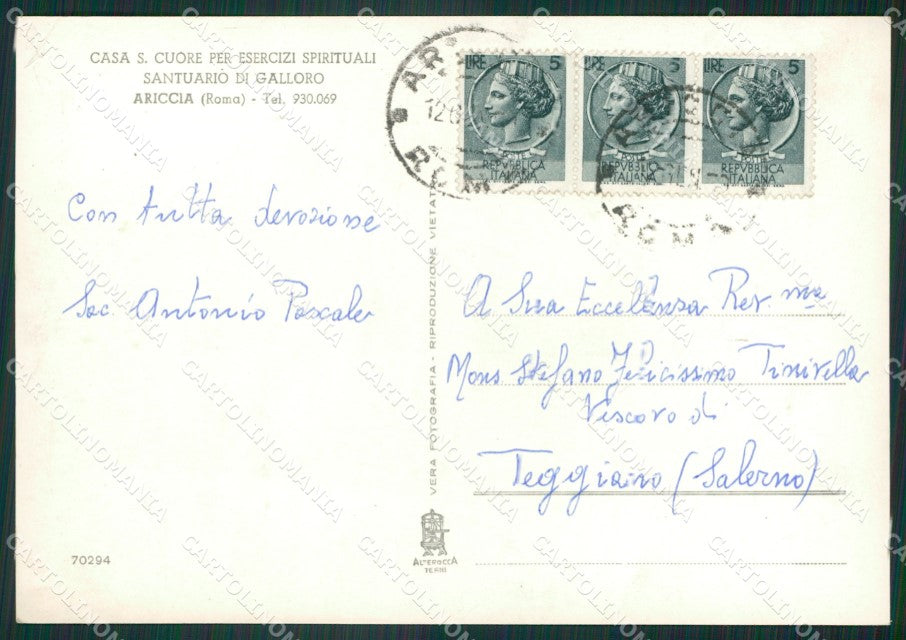 CASA S. CUORE PER ESERCIZI SPIRITUALI
SANTUARIO DI GALLORO
ARICCIA (Roma) - Tel. 930.069
LIRE 5
POSTE
REPVBBLICA
ITALIANA
LIRE 5
POSTE
REPVBBLICA
ITALIANA
LIRE 5
POSTE
REPVBBLICA
ITALIANA
ROMA
Con tutta devozione
Sac. Antonio Pascale
A Sua Eccellenza Rev ma
Mons Stefano Felicissimo Tinivella
Vescovo di
Teggiano (Salerno)
VERA FOTOGRAFIA - RIPRODUZIONE VIETATA
70294
ALTEROCCA
TERNI
CARTOLINOMANIA